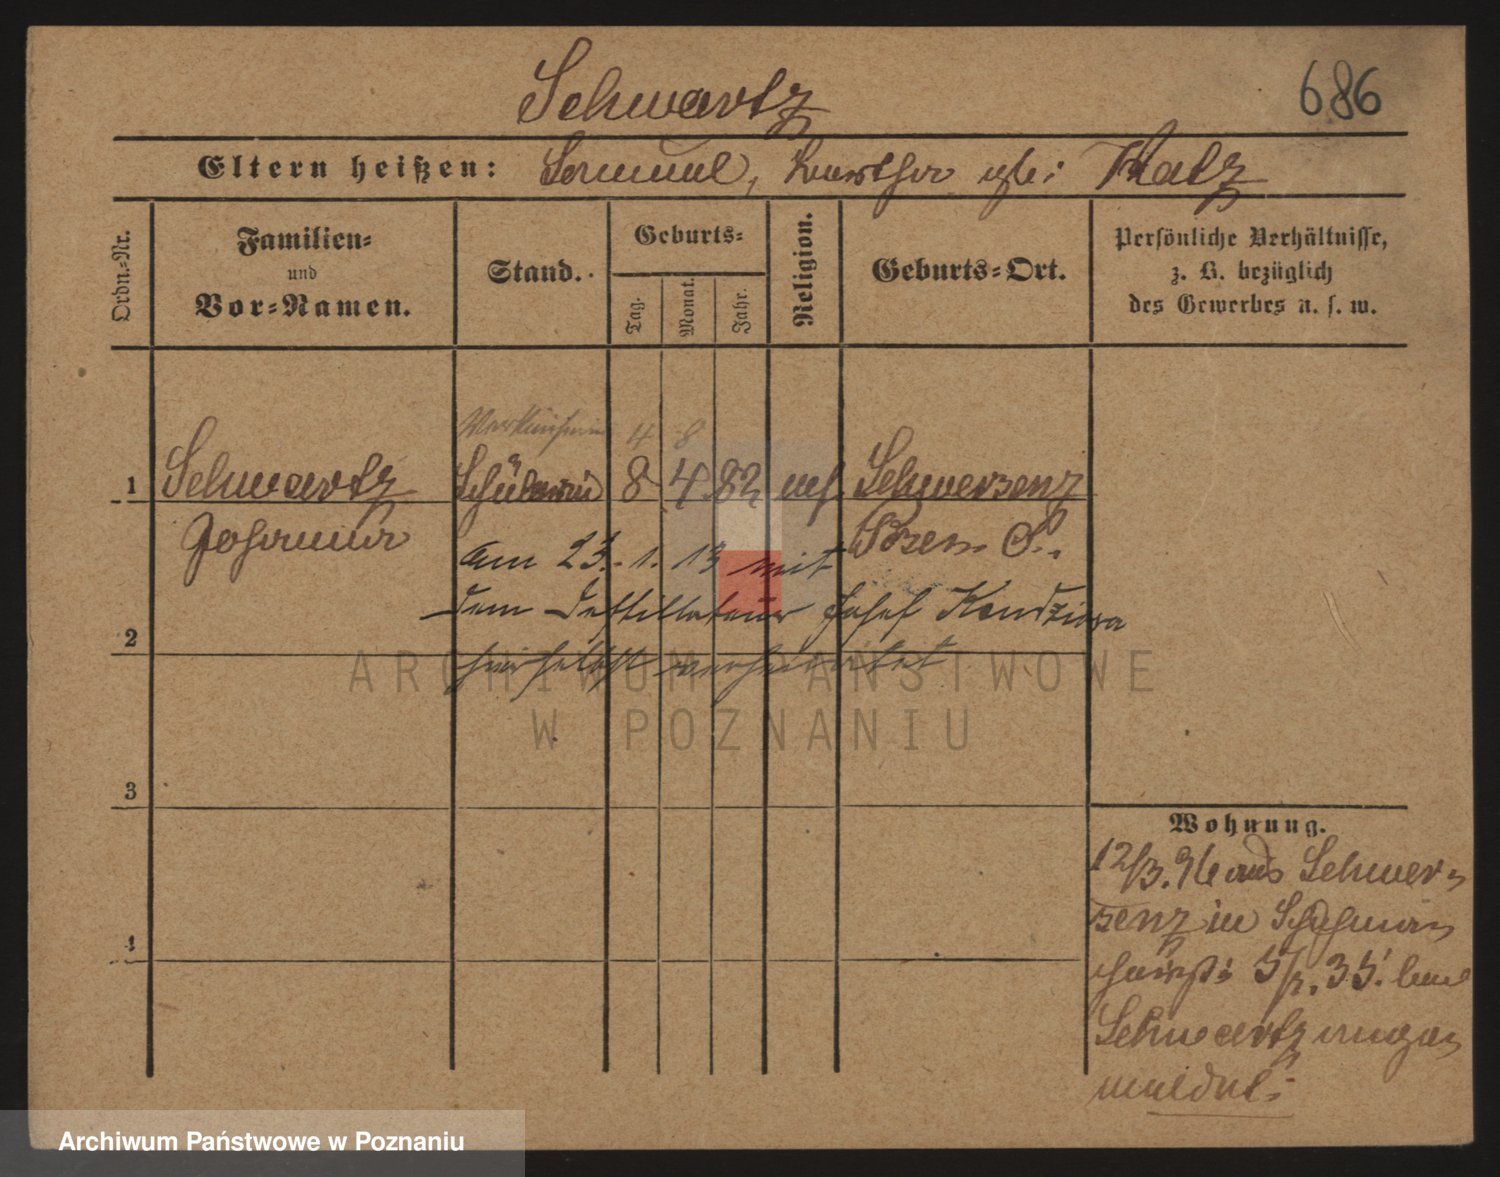 Schwartz
686
Eltern heißen: Samuel, Bertha geb: Katz
Ordn.-Nr.
Familien-
und
Vor-Namen.
Stand.
Geburts-
Tag.
Monat.
Jahr.
Religion.
Geburts-Ort.
Persönliche Verhältnisse,
z. B. bezüglich
des Gewerbes u. s. w.
Verkäuferin 4 8
1 Schwartz Schülerin 8 4 82 Schwersenz
Johanna Posen O.
am 23.-1. 13 mit
dem Destillateur Josef Kendziora
hierselbst verheiratet
2
3
4
Wohnung.
12/3. 96 aus Schwer-
senz in Schuhma-
cherst: 5/I. 35. bei
Schwartz ange-
meldet.
ARCHIWUM PAŃSTWOWE
W POZNANIU
Archiwum Państwowe w Poznaniu